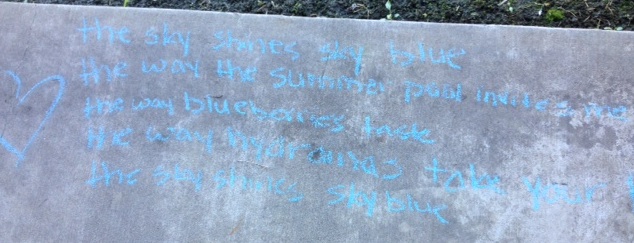 the sky shines sky blue
the way the summer pool invites me
the way blueberries taste
the way hydrangeas take your
the sky shines sky blue